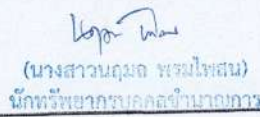 (นางสาวนฤมล พรมไพสน)
นักทรัพยากรบุคคลชำนาญการ